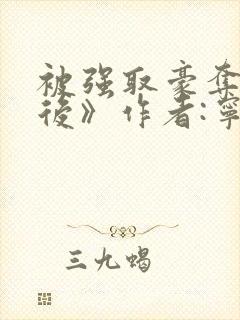 被强取豪夺
後》作者:寧
三九蝎